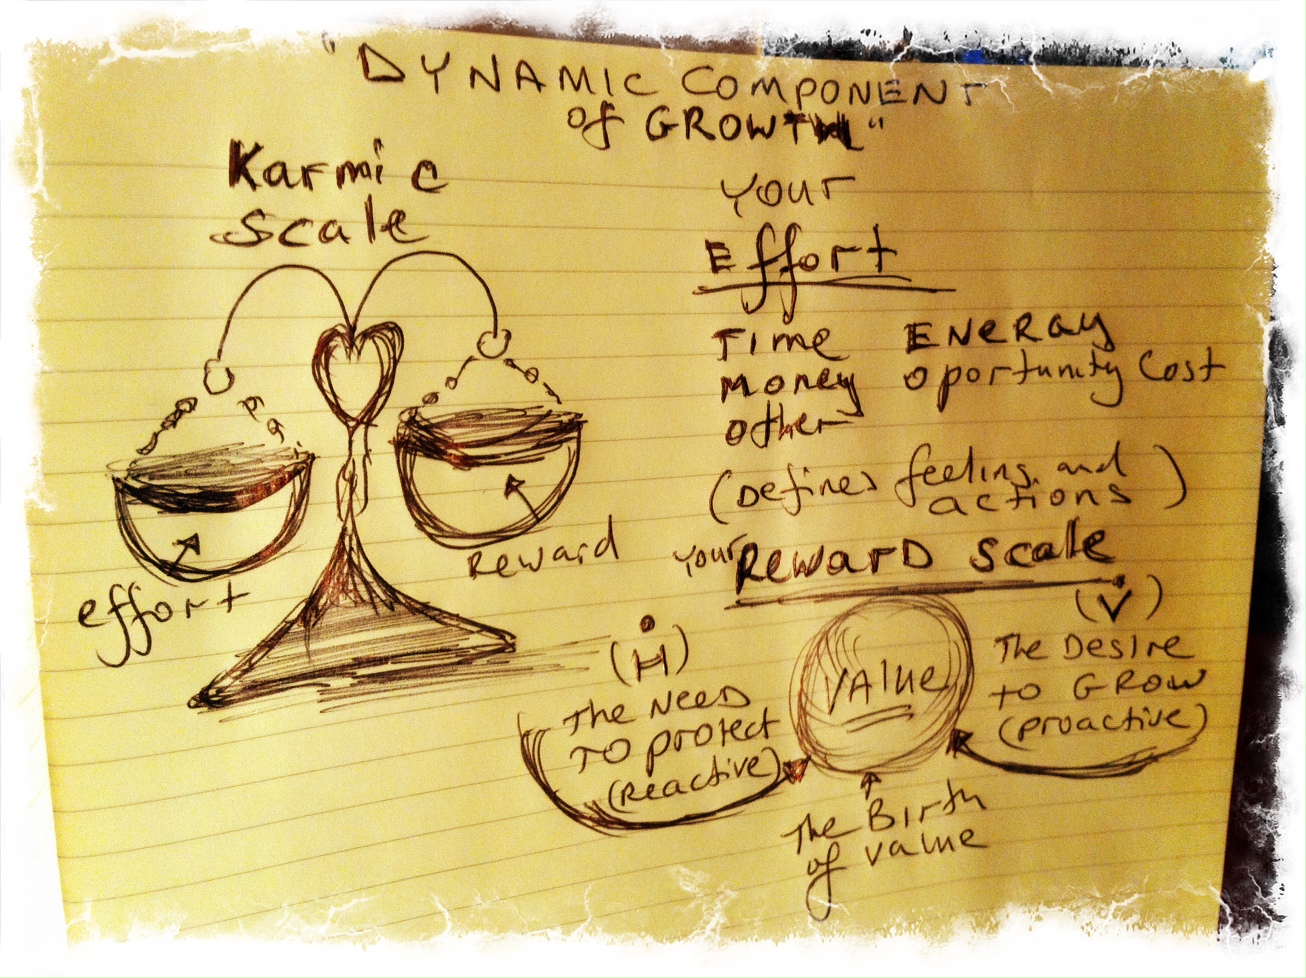 "DYNAMIC COMPONENT
of GROWTH"
Karmic
Scale
effort
Reward
Your
Effort
Time ENERGY
money oportunity Cost
other
(Defines feeling and
actions)
Your Reward Scale
(H)
The NEED
TO protect
(Reactive)
VAlue
(V)
The Desire
to GROW
(proactive)
The Birth
of value